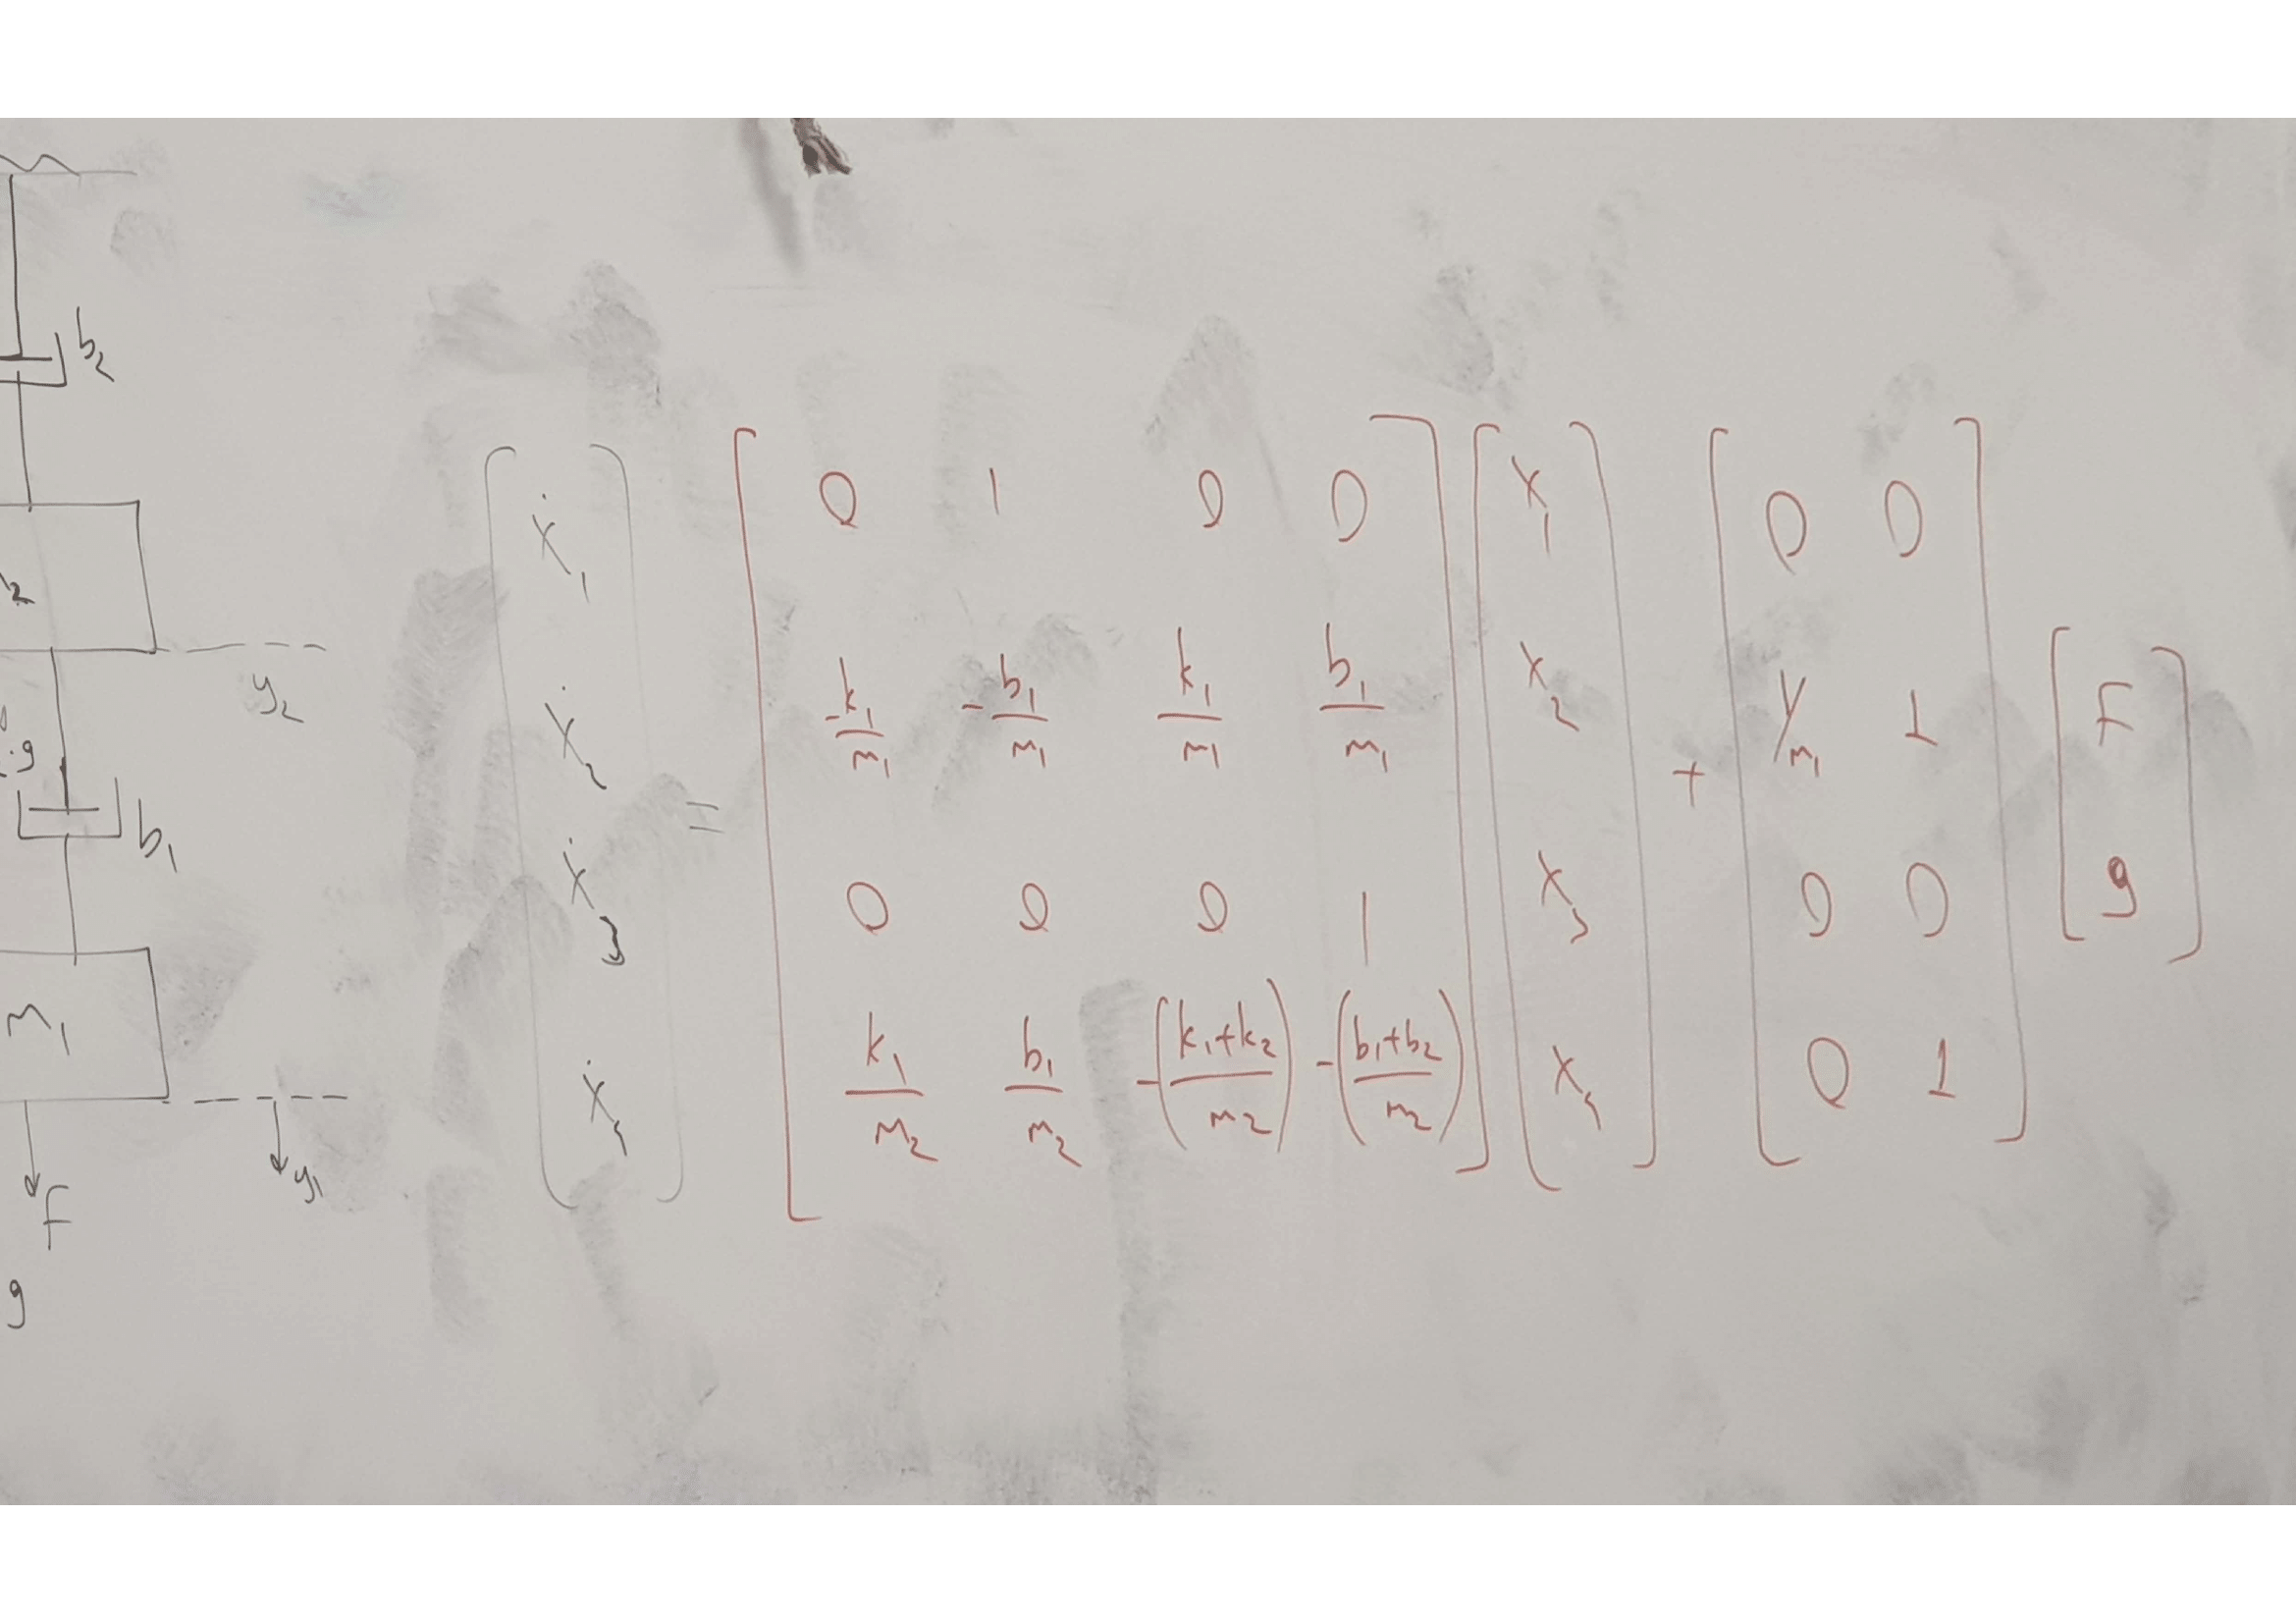 b₂
y₂
b₁
m₁
F
y₁
g
[ẋ₁; ẋ₂; ẋ₃; ẋ₄] = [0 1 0 0; -k₁/m₁ -b₁/m₁ k₁/m₁ b₁/m₁; 0 0 0 1; k₁/m₂ b₁/m₂ -(k₁+k₂/m₂) -(b₁+b₂/m₂)] [x₁; x₂; x₃; x₄] + [0 0; 1/m₁ 1; 0 0; 0 1] [F; g]